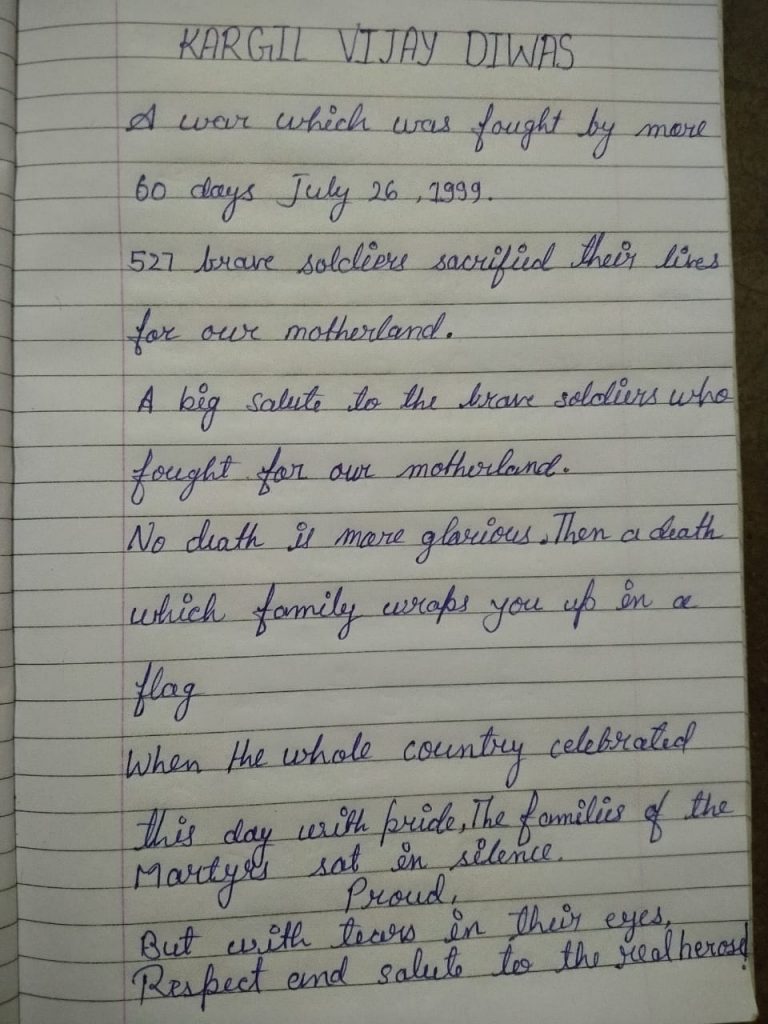 KARGIL VIJAY DIWAS
A war which was fought by more
60 days July 26, 1999.
527 brave soldiers sacrified their lives
for our motherland.
A big salute to the brave soldiers who
fought for our motherland.
No death is more glorious. Then a death
which family wraps you up in a
flag
When the whole country celebrated
this day with pride, The families of the
Martyrs sat in silence.
Proud,
But with tears in their eyes,
Respect and salute to the real heros!